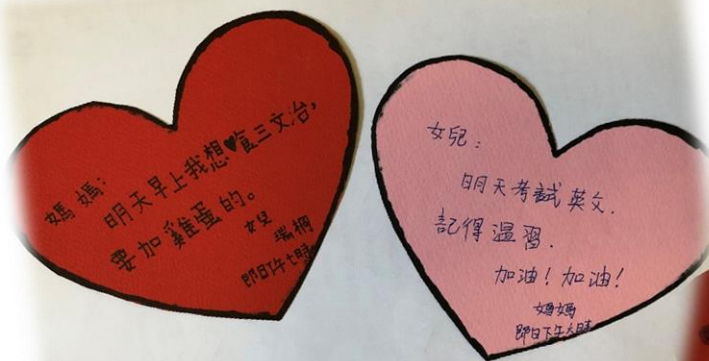 媽媽：
明天早上我想♥食三文治，
要加雞蛋的。
女兒
瑞桐
即日下午七時
女兒：
明天考試英文．
記得溫習．
加油！加油！
媽媽
即日下午六時